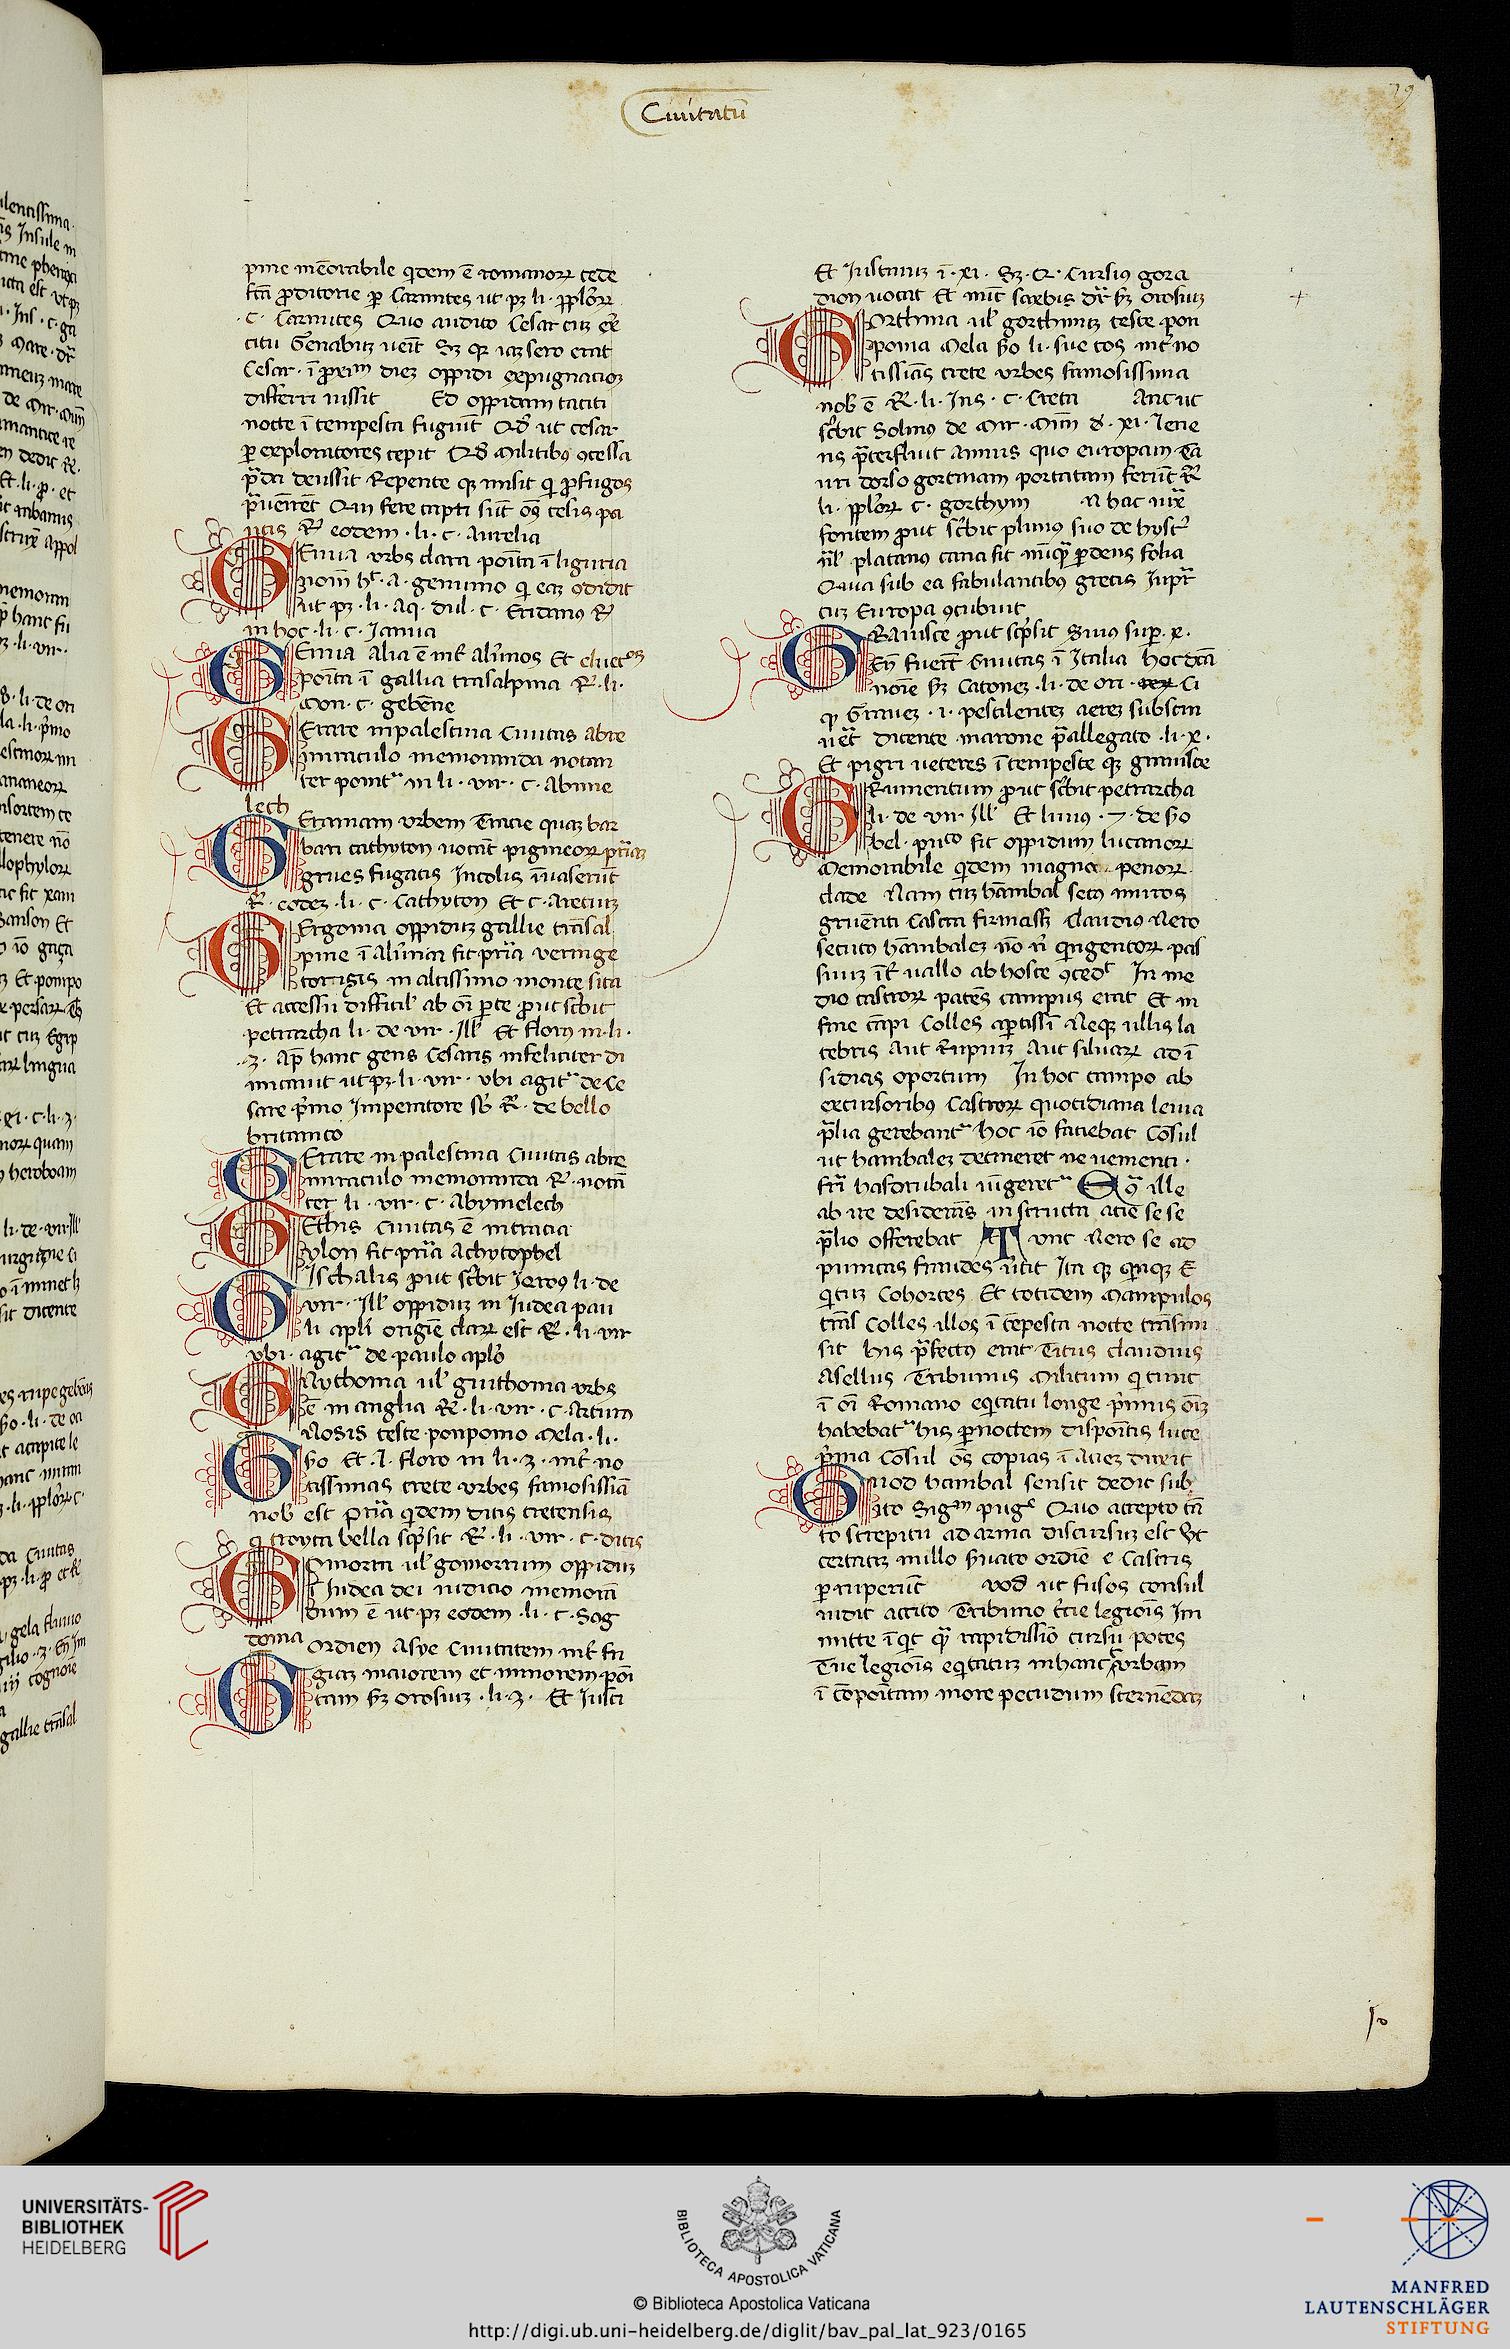 Ciuitatū
79
pine mēorabile qdem ē romanoꝝ cede
fcā ꝓditorie ꝑ Carnutes ut pꝫ li. ppl'oꝝ
.C. Carnutes Quo audito Cesar cū ex̄
citu Genabuꝫ ueīt Sꝫ qꝛ iaꝫ sero erat
Cesar. ī ꝓximū dieꝫ oppidi expugnacioꝫ
differri iussit Ed oppidani taciti
nocte ītempesta fugiūt Qđ ut cesar
ꝑ exploratores cepit Qđ militibꝰ ꝯcessa
p̄da deussit Repente qꝫ misit q̄ ꝓfugos
p̄uenēret Qui fere capti sūt oēs celis pa
ucis R̄ eodem .li. c. Aurelia
GEnua urbs clara poīta ī liguria
noīm ht̄. a. genuino q̄ eaꝫ ꝯdidit
ut pꝫ .li. aq. dul. c. Eridanus R̄
in hoc .li. c. Ianua
GEnua alia ē int̄ alūnos Et eluetꝰos
poīta ī gallia trāsalpina R̄. li.
Mon. c. gebēne
GErare in palestina Ciuitas abre
miraculo memoranda notan
ter poīntʳ in li. uir. c. Abime
lech
GEraniam urbem Tracie quaꝫ bar
bari cathyton uocāt pigineoꝝ p̄riaꝫ
grues fugatis Incolis īuaserūt
R̄. eodeꝫ .li. c. Cathyton Et c. Areciuꝫ
GErgonia oppiduꝫ gallie trāsal
pine ī aluīnia fit p̄ria Veringe
torigis in altissimo monte sita
Et accessu difficil' ab oī ꝑte ꝓut sc̄bit
petrarcha li. de uir. Ill' Et florꝰ in li.
.3. Ap̄ hanc gens Cesaris infeliciter di
micauit ut pꝫ .li. uir. ubi agitʳ de Ce
sare p̄mo Imperatore sƀ R̄. de bello
britanico
GErare in palestina Ciuitas abre
miraculo memoranda R̄. notā
ter li. uir. c. Abymelech
GEthis Ciuitas ē in tracia
ylon fit p̄ria Achytophel
GIschalis ꝓut sc̄bit Ieroꝰ li. de
uir. Ill' oppiduꝫ in Iudea pau
li apli origīe claꝝ est R̄. li. uir
ubi. agitʳ de paulo aplo
GUythonia ul' guithonia urbs
ē in anglia R̄. li. uir. c. Artura
GNosis teste ponponio mela .li.
ẜo Et .l. floro in li. 3. int̄ no
tissimas crete urbes famosissiā
nob' est p̄ria qdem ditis cretensis
q̄ troyca bella sc̄psit R̄. li. uir. c. ditis
GOmorra ul' gomorrum oppiduꝫ
ī Iudea dei iudicio memorā
dum ē ut pꝫ eodem .li. c. Sog
doma
GOrdien Asye Ciuitatem int̄ fri
giaꝫ maiorem et minorem poī
tam sꝫ orosiuꝫ .li. 3. Et Iusti
Et Iustinuꝫ ī. xi. Sꝫ. Q. Cursiꝰ gora
dion uocat Et mīt scribis dr̄ sꝫ orosiuꝫ
GOrthina ul' gorthiniꝫ teste pon
ponia Mela ẜo li. sue cos int̄ no
tissiās crete urbes famosissima
nob' ē R̄. li. Ins. c. Creta Anc ut
sc̄bit Solinꝰ de mir. mūn đ. xi. lene
us p̄terfluit amnis quo europam ea
uri dorso gortinam portatam ferūt R̄
li. ppl'oꝝ c. gorthym N hac iux̄
fontem ꝓut sc̄bit plinius suo de hystͬ
n̄l' platanꝰ cana fit nūq̄ ꝑdens folia
Qua sub ea fabulantibꝰ grecis Iupr̄
cuꝫ Europa ꝯcubuit
GRauisce ꝓut sc̄psit Sꝰuiꝰ sup. x.
En̄ fuerūt Ciuitas ī Italia hoc dcā
noīe sꝫ Catoneꝫ .li. de ori. Ci
qꝫ Grauez .i. pestilenteꝫ aereꝫ substin
uēt dicente marone p̄allegato .li. x.
Et pigri ueteres ītempeste qꝫ grauisce
GRumentum ꝓut sc̄bit petrarcha
li. de uir. Ill' Et liuius .7. de ẜo
bel. puico fit oppidum lucanoꝝ
Memorabile qdem magna. penoꝝ.
clade Nam cuꝫ hānibal secꝰ muros
grumēti Castra firmasꝫ Claudiꝰ Nero
secutꝰ hānibaleꝫ nō n̄ qingentoꝝ pas
siuuꝫ īt̄ uallo ab hoste ꝯcedt̄ In me
dio castroꝝ patēs campus erat Et in
fine cāpi Colles aꝑtissī Neqꝫ ullis la
tebris Aut Rupiuꝫ Aut siluaꝝ ad ī
sidias oportuni In hoc campo ab
excursoribꝰ Castroꝝ quotidiana leuia
p̄lia gerebantʳ hoc iō faciebat Cōsul
ut hanibaleꝫ detineret ne uementi.
fr̄i hasdrubali iūgeretʳ Qꝫ ille
ab ire desiderās instructa acie se se
p̄lio offerebat Tunc Nero se ad
punicas fraudes ūtit Ita qꝫ qinqꝫ E
qituꝫ Cohortes Et totidem Manipulos
trās Colles illos ī tēpesta nocte trāsmi
sit his p̄fectꝰ erat Titus claudius
Asellus Tribunus Militum q̄ tunc
ī oī Romano eqitatu longe p̄mus oīꝫ
habebatʳ his ꝑ noctem dispoītis luce
p̄ma Cōsul oēs copias ī Aueꝫ duxit
Quod hanibal sensit dedit sub
ito Sigᵐ pugᵉ Quo accepto tā
to strepitu ad arma discursuꝫ est Ut
certatiꝫ nullo ẜuato ordīe e Castris
ꝑruperūt uod ut fusos consul
uidit accito Tribuno t̄cie legioīs Im
mitte īqit q̄ rapidissīo cursu potes
Tue legioīs eqitatuꝫ in hanc turbam
ī cōpoītam more pecudum sternēdaꝫ
UNIVERSITÄTS-
BIBLIOTHEK
HEIDELBERG
BIBLIOTECA APOSTOLICA VATICANA
© Biblioteca Apostolica Vaticana
http://digi.ub.uni-heidelberg.de/diglit/bav_pal_lat_923/0165
MANFRED
LAUTENSCHLÄGER
STIFTUNG